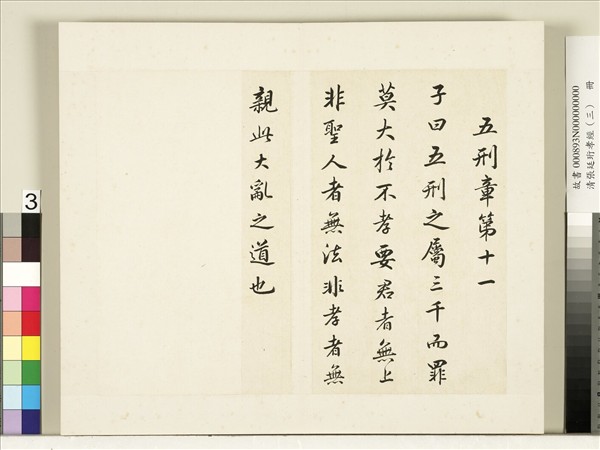 五刑章第十一
子曰五刑之屬三千而罪
莫大於不孝要君者無上
非聖人者無法非孝者無
親此大亂之道也
故書 000893N000000000
清張廷珩孝經（三） 冊
3